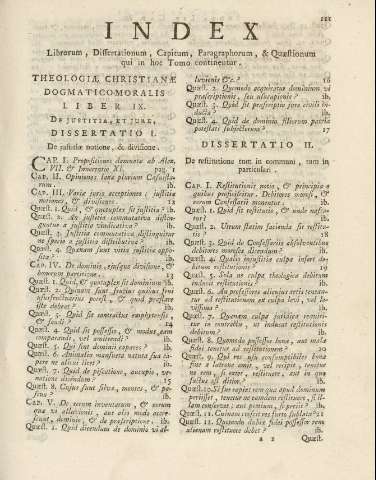 III
INDEX
Librorum, Dissertationum, Capitum, Paragraphorum, & Quæstionum
qui in hoc Tomo continentur.
THEOLOGIÆ CHRISTIANÆ
DOGMATICOMORALIS
LIBER IX.
DE JUSTITIA, ET JURE,
DISSERTATIO I.
De justitiæ notione, & divisione.
CAP. I. Propositiones damnatæ ab Alex.
VII. & Innocentio XI. pag. 1
CAP. II. Opiniones laxæ plurium Casuista-
rum. ib.
CAP. III. Variæ juris acceptiones: justitiæ
notiones, & divisiones. 12
Quæst. 1. Quid, & quotuplex sit justitia? ib.
Quæst. 2. An justitia commutativa distin-
guatur a justitia vindicativa? ib.
Quæst. 3. Justitia commutativa distinguitur
ne specie a justitia distributiva? ib.
Quæst. 4. Quænam sunt vitia justitiæ oppo-
sita? ib.
CAP. IV. De dominio, ejusque divisione, &
bonorum partitione. 13
Quæst. 1. Quid, & quotuplex sit dominium? ib.
Quæst. 2.
usufructuarius potest, & quid præstare
iste debeat? ib.
Quæst. 3. Quid sit contractus emphyteusis,
& feudi? 14
Quæst. 4. Quid sit possessio, & modus eam
comparandi, vel amittendi? ib.
Quæst. 5. Qui sint dominii capaces? ib.
Quæst. 6. Animalia mansueta natura sua ca-
pere ne alicui licet? ib.
Quæst. 7. Quid de piscatione, aucupio, ve-
natione dicendum? 15
Quæst. 8. Cujus sint silvæ, montes, & pa-
scua? ib.
CAP. V. De rerum inventarum, & earum
quæ vi alluvionis, aut alio modo accre-
scunt, dominio, & de præscriptione. ib.
Quæst. 1. Quid dicendum de dominio vi al-
luvionis &c.? 16
Quæst. 2. Quomodo acquiratur dominium vi
præscriptionis, seu usucapionis? ib.
Quæst. 3. Quid sit præscriptio jure civili in-
ducta? ib.
Quæst. 4. Quid de dominio filiorum patriæ
potestati subjectorum? 17
DISSERTATIO II.
De restitutione tum in communi, tum in
particulari.
CAP. I. Restitutionis notio, & principia e
quibus proficiscitur. Debitores monsi, &
eorum Confessarii monentur. ib.
Quæst. 1. Quid sit restitutio, & unde nasca-
tur? ib.
Quæst. 2. Utrum statim facienda sit restitu-
tio? 18
Quæst. 3. Quid de Confessariis absolventibus
debitores morosos dicendum? ib.
Quæst. 4. Qualis injustitiæ culpa inferat de-
bitum restitutionis 19
Quæst. 5. Sola ne culpa theologica debitum
inducit restitutionis? ib.
Quæst. 6. An possessores alienos artis tenean-
tur ad restitutionem ex culpa levi, vel le-
vissima? ib.
Quæst. 7. Quænam culpa juridica requira-
tur in contractu, ut inducat restitutionis
debitum? ib.
Quæst. 8. Quomodo possessor bonæ, aut malæ
fidei tenetur ad restitutionem? ib.
Quæst. 9. Qui res usu consumptibiles bona
fide a latrone emit, vel recipit, tenetur
ne rem, si extet, restituere, aut in quo
factus est ditior? ib.
Quæst. 10. Si fur rapiat rem quæ apud dominum
periisset, tenetur ne eamdem restituere, si il-
lam conservat: aut pretium, si perit? ib.
Quæst. 11. Cuinam restitui res furto sublata? ib.
Quæst. 12. Quando dubiæ fidei possessor rem
alienam restituere debet? ib.
a 2 Quæst.